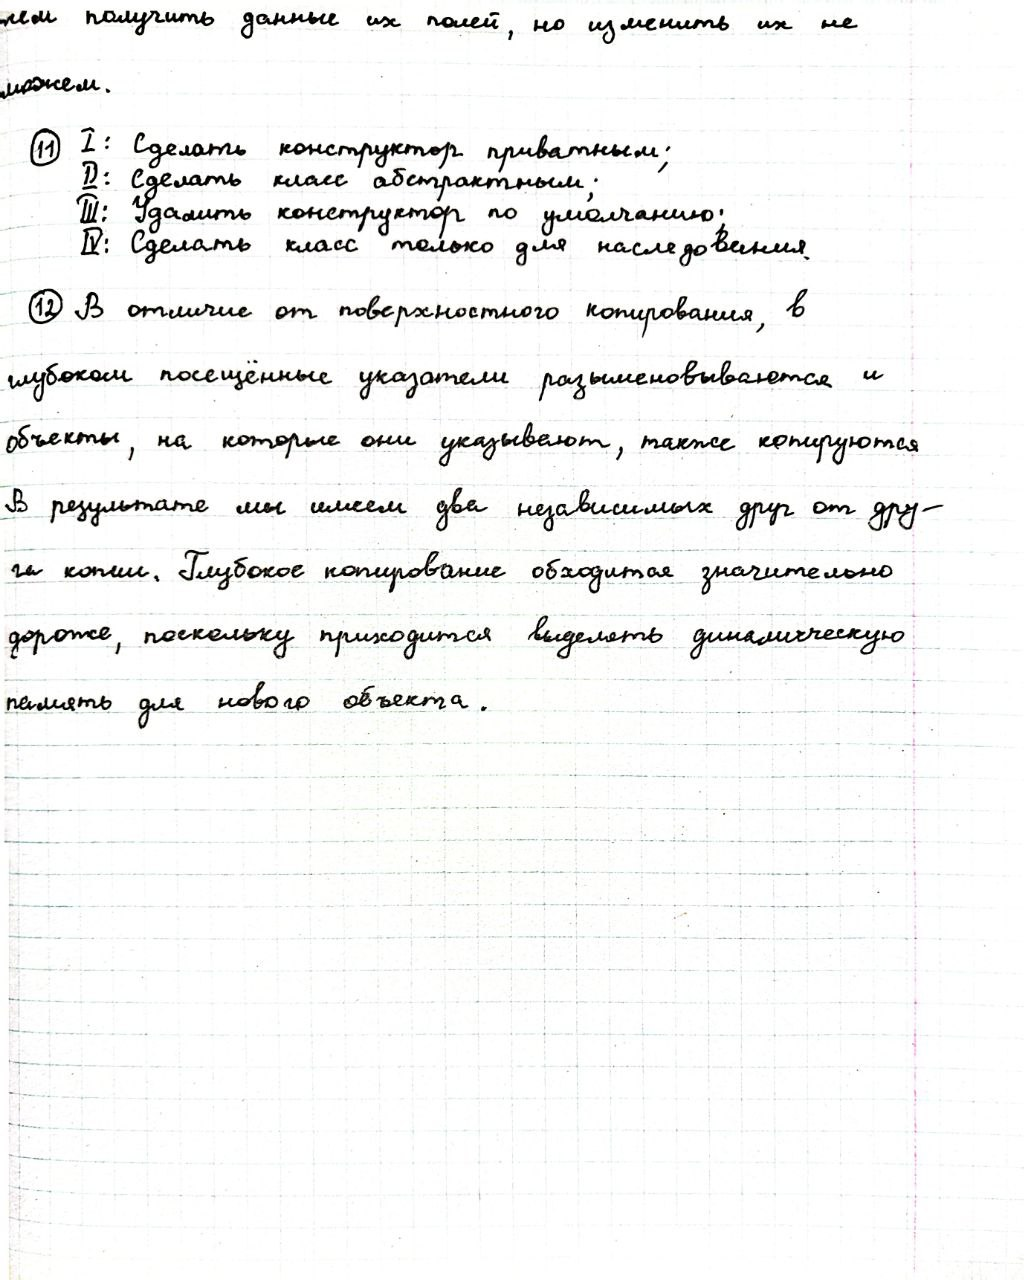 жем получить данные их полей, но изменить их не
можем.
11 I: Сделать конструктор приватным;
II: Сделать класс абстрактным;
III: Удалить конструктор по умолчанию;
IV: Сделать класс только для наследования.
12 В отличие от поверхностного копирования, в
глубоком посещённые указатели разыменовываются и
объекты, на которые они указывают, также копируются
В результате мы имеем два независимых друг от дру-
га копии. Глубокое копирование обходится значительно
дороже, поскольку приходится выделять динамическую
память для нового объекта.